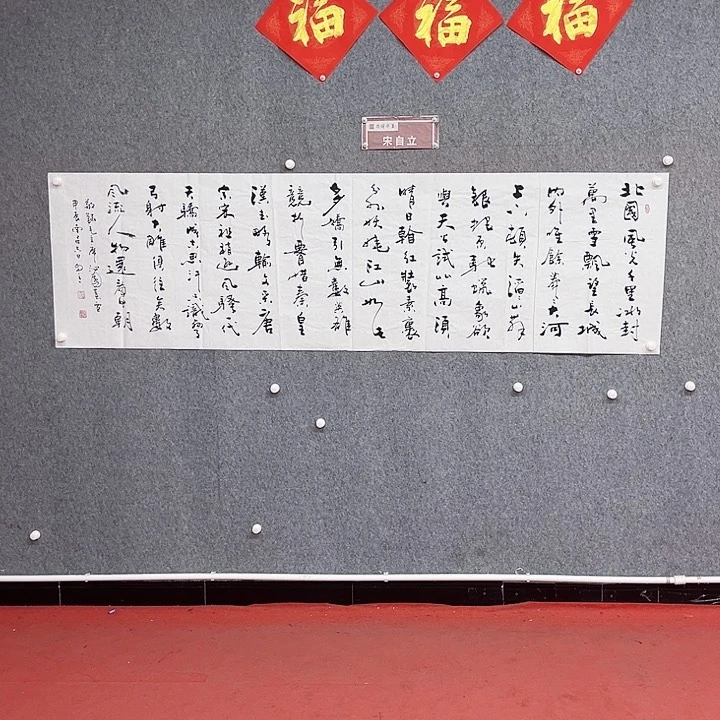 福
福
福
宋自立
北國風光千里冰封
萬里雪飄望長城
内外唯餘莽莽大河
上下頓失滔滔山舞
銀蛇原馳蠟象欲
與天公試比高須
晴日看紅裝素裹
分外妖嬈江山如此
多嬌引無數英雄
競折腰惜秦皇
漢武略輸文采唐
宗宋祖稍遜風騷一代
天驕成吉思汗只識彎
弓射大雕俱往矣數
風流人物還看今朝
敬録毛主席沁園春雪
甲辰